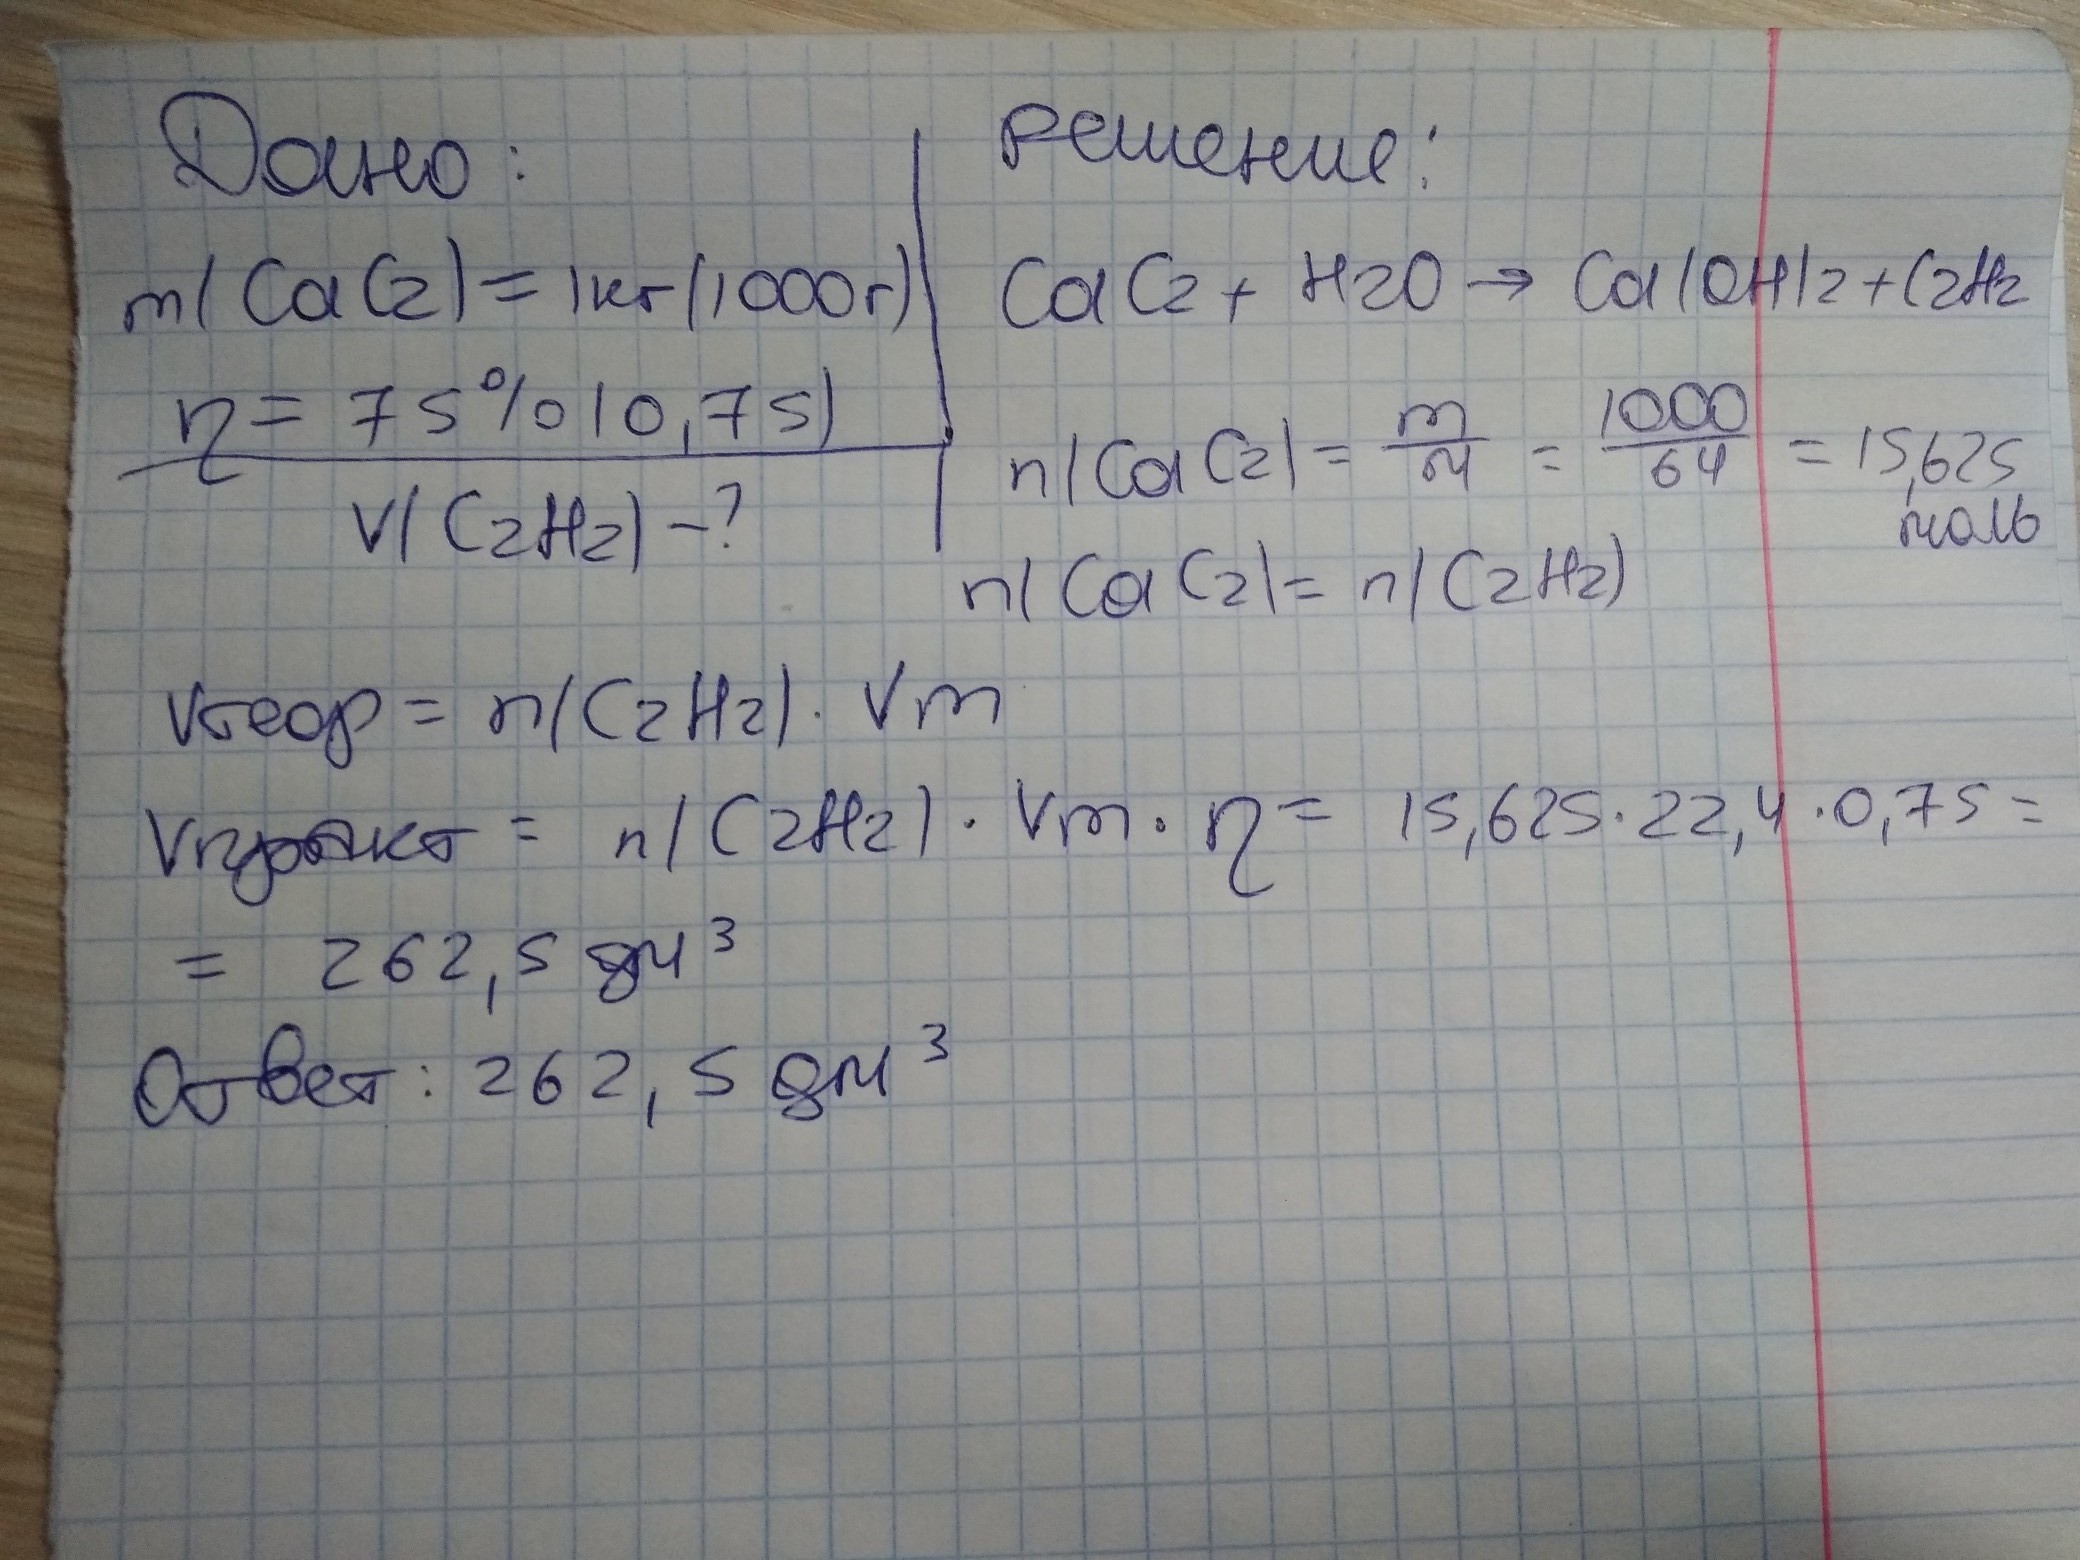 Дано:
m(CaC2)=1кг(1000г)
η= 75%(0,75)
V(C2H2)-?
Решение:
CaC2+ H2O → Ca(OH)2+C2H2
n(CaC2)= m/M = 1000/64 = 15,625
моль
n(CaC2)= n(C2H2)
Vтеор = n(C2H2)· Vm
Vпракт = n(C2H2)· Vm · η = 15,625·22,4·0,75=
= 262,5 дм³
Ответ: 262,5 дм³